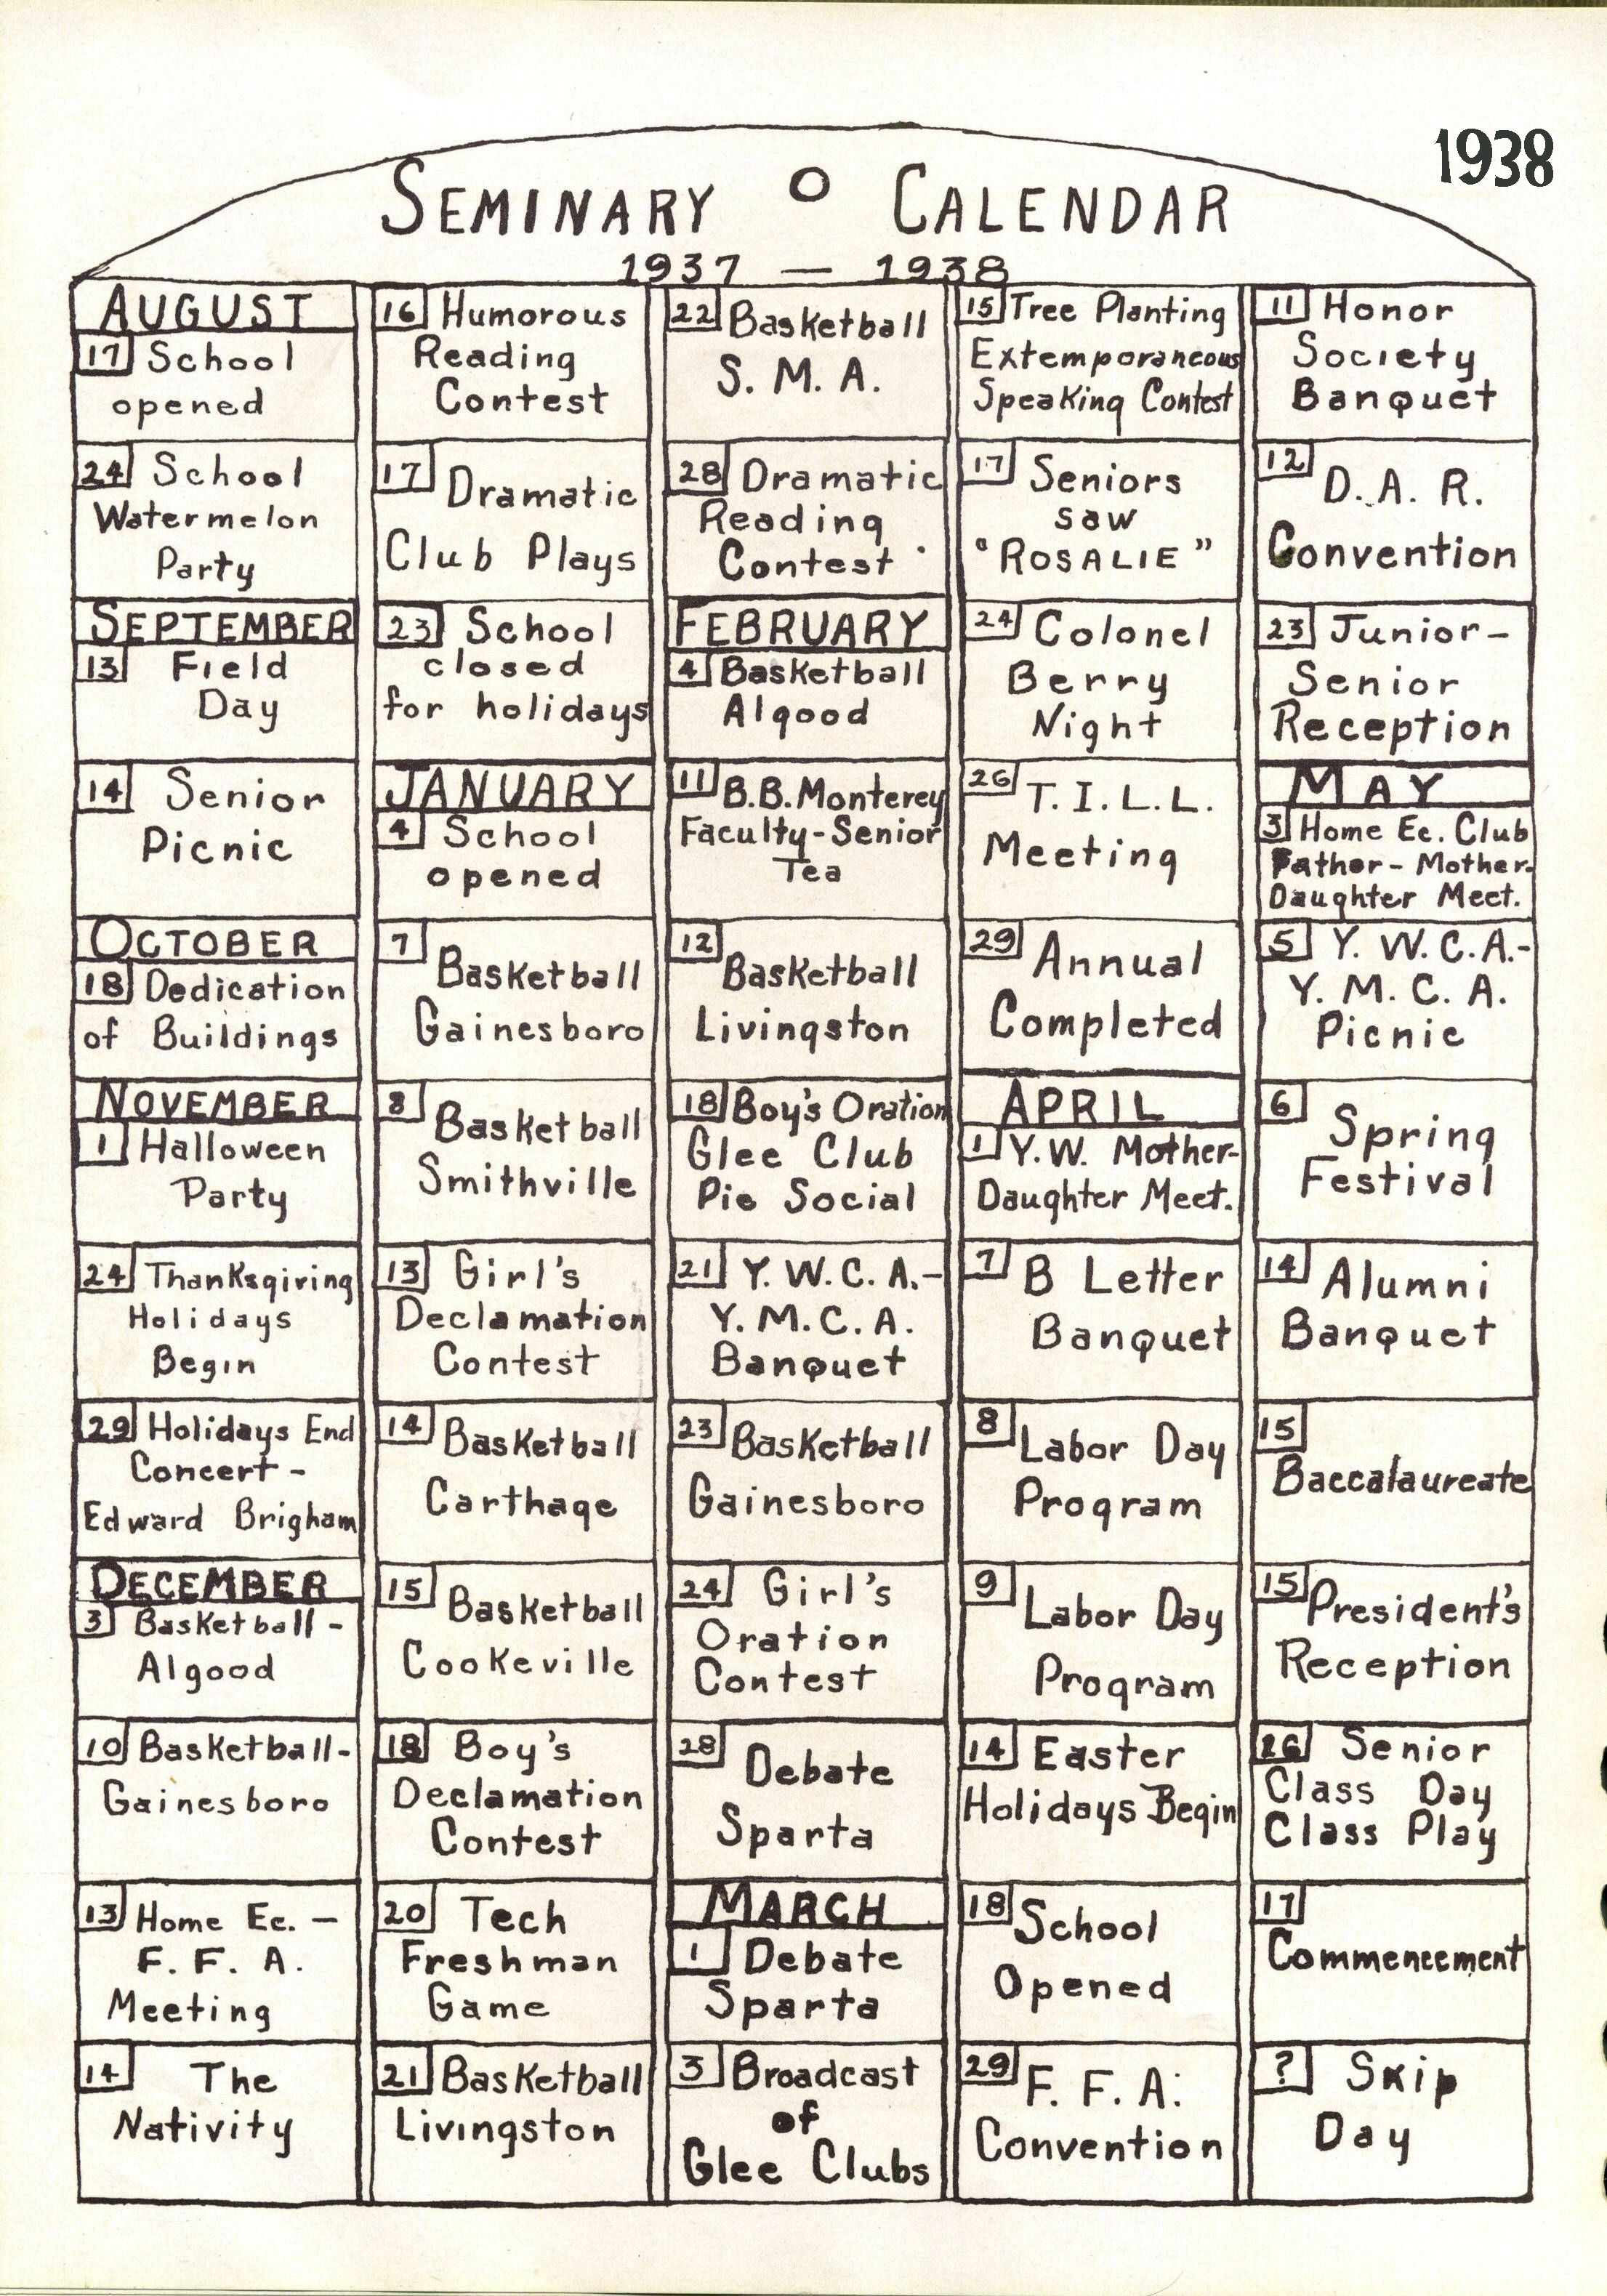 1938
SEMINARY CALENDAR
1937 — 1938
AUGUST
17 School
opened
24 School
Watermelon
Party
SEPTEMBER
13 Field
Day
14 Senior
Picnic
OCTOBER
18 Dedication
of Buildings
NOVEMBER
1 Halloween
Party
24 Thanksgiving
Holidays
Begin
29 Holidays End
Concert -
Edward Brigham
DECEMBER
3 Basketball -
Algood
10 Basketball -
Gainesboro
13 Home Ec. —
F. F. A.
Meeting
14 The
Nativity
16 Humorous
Reading
Contest
17 Dramatic
Club Plays
23 School
closed
for holidays
JANUARY
4 School
opened
7 Basketball
Gainesboro
8 Basketball
Smithville
13 Girl's
Declamation
Contest
14 Basketball
Carthage
15 Basketball
Cookeville
18 Boy's
Declamation
Contest
20 Tech
Freshman
Game
21 Basketball
Livingston
22 Basketball
S. M. A.
28 Dramatic
Reading
Contest
FEBRUARY
4 Basketball
Algood
11 B.B. Monterey
Faculty-Senior
Tea
12 Basketball
Livingston
18 Boy's Oration
Glee Club
Pie Social
21 Y. W. C. A.-
Y. M. C. A.
Banquet
23 Basketball
Gainesboro
24 Girl's
Oration
Contest
28 Debate
Sparta
MARCH
1 Debate
Sparta
3 Broadcast
of
Glee Clubs
15 Tree Planting
Extemporaneous
Speaking Contest
17 Seniors
saw
"ROSALIE"
24 Colonel
Berry
Night
26 T. I. L. L.
Meeting
29 Annual
Completed
APRIL
1 Y.W. Mother-
Daughter Meet.
7 B Letter
Banquet
8 Labor Day
Program
9 Labor Day
Program
14 Easter
Holidays Begin
18 School
Opened
29 F. F. A.
Convention
11 Honor
Society
Banquet
12 D. A. R.
Convention
23 Junior-
Senior
Reception
MAY
3 Home Ec. Club
Father - Mother-
Daughter Meet.
5 Y. W. C. A.-
Y. M. C. A.
Picnic
6 Spring
Festival
14 Alumni
Banquet
15
Baccalaureate
15 President's
Reception
26 Senior
Class Day
Class Play
17
Commencement
? Skip
Day